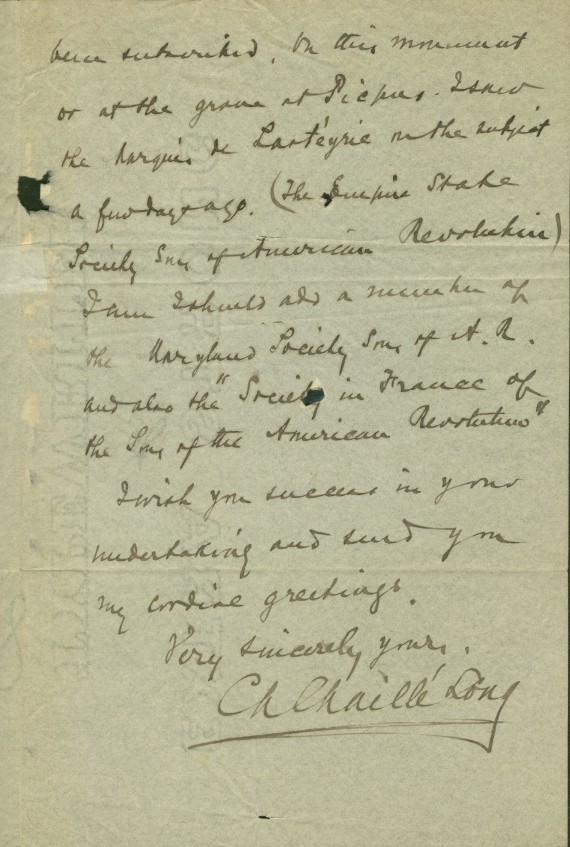 been subscribed, On this monument
or at the grave at Picpus. I saw
the Marquis de Lastéyrie on the subject
a few days ago. (The Empire State
Society Sons of American Revolution)
I am I should add a member of
the Maryland Society Sons of A. R.
and also the "Society in France of
the Sons of the American Revolution"
I wish you success in your
undertaking and send you
my cordial greetings.
Very sincerely yours.
Ch Chaillé Long